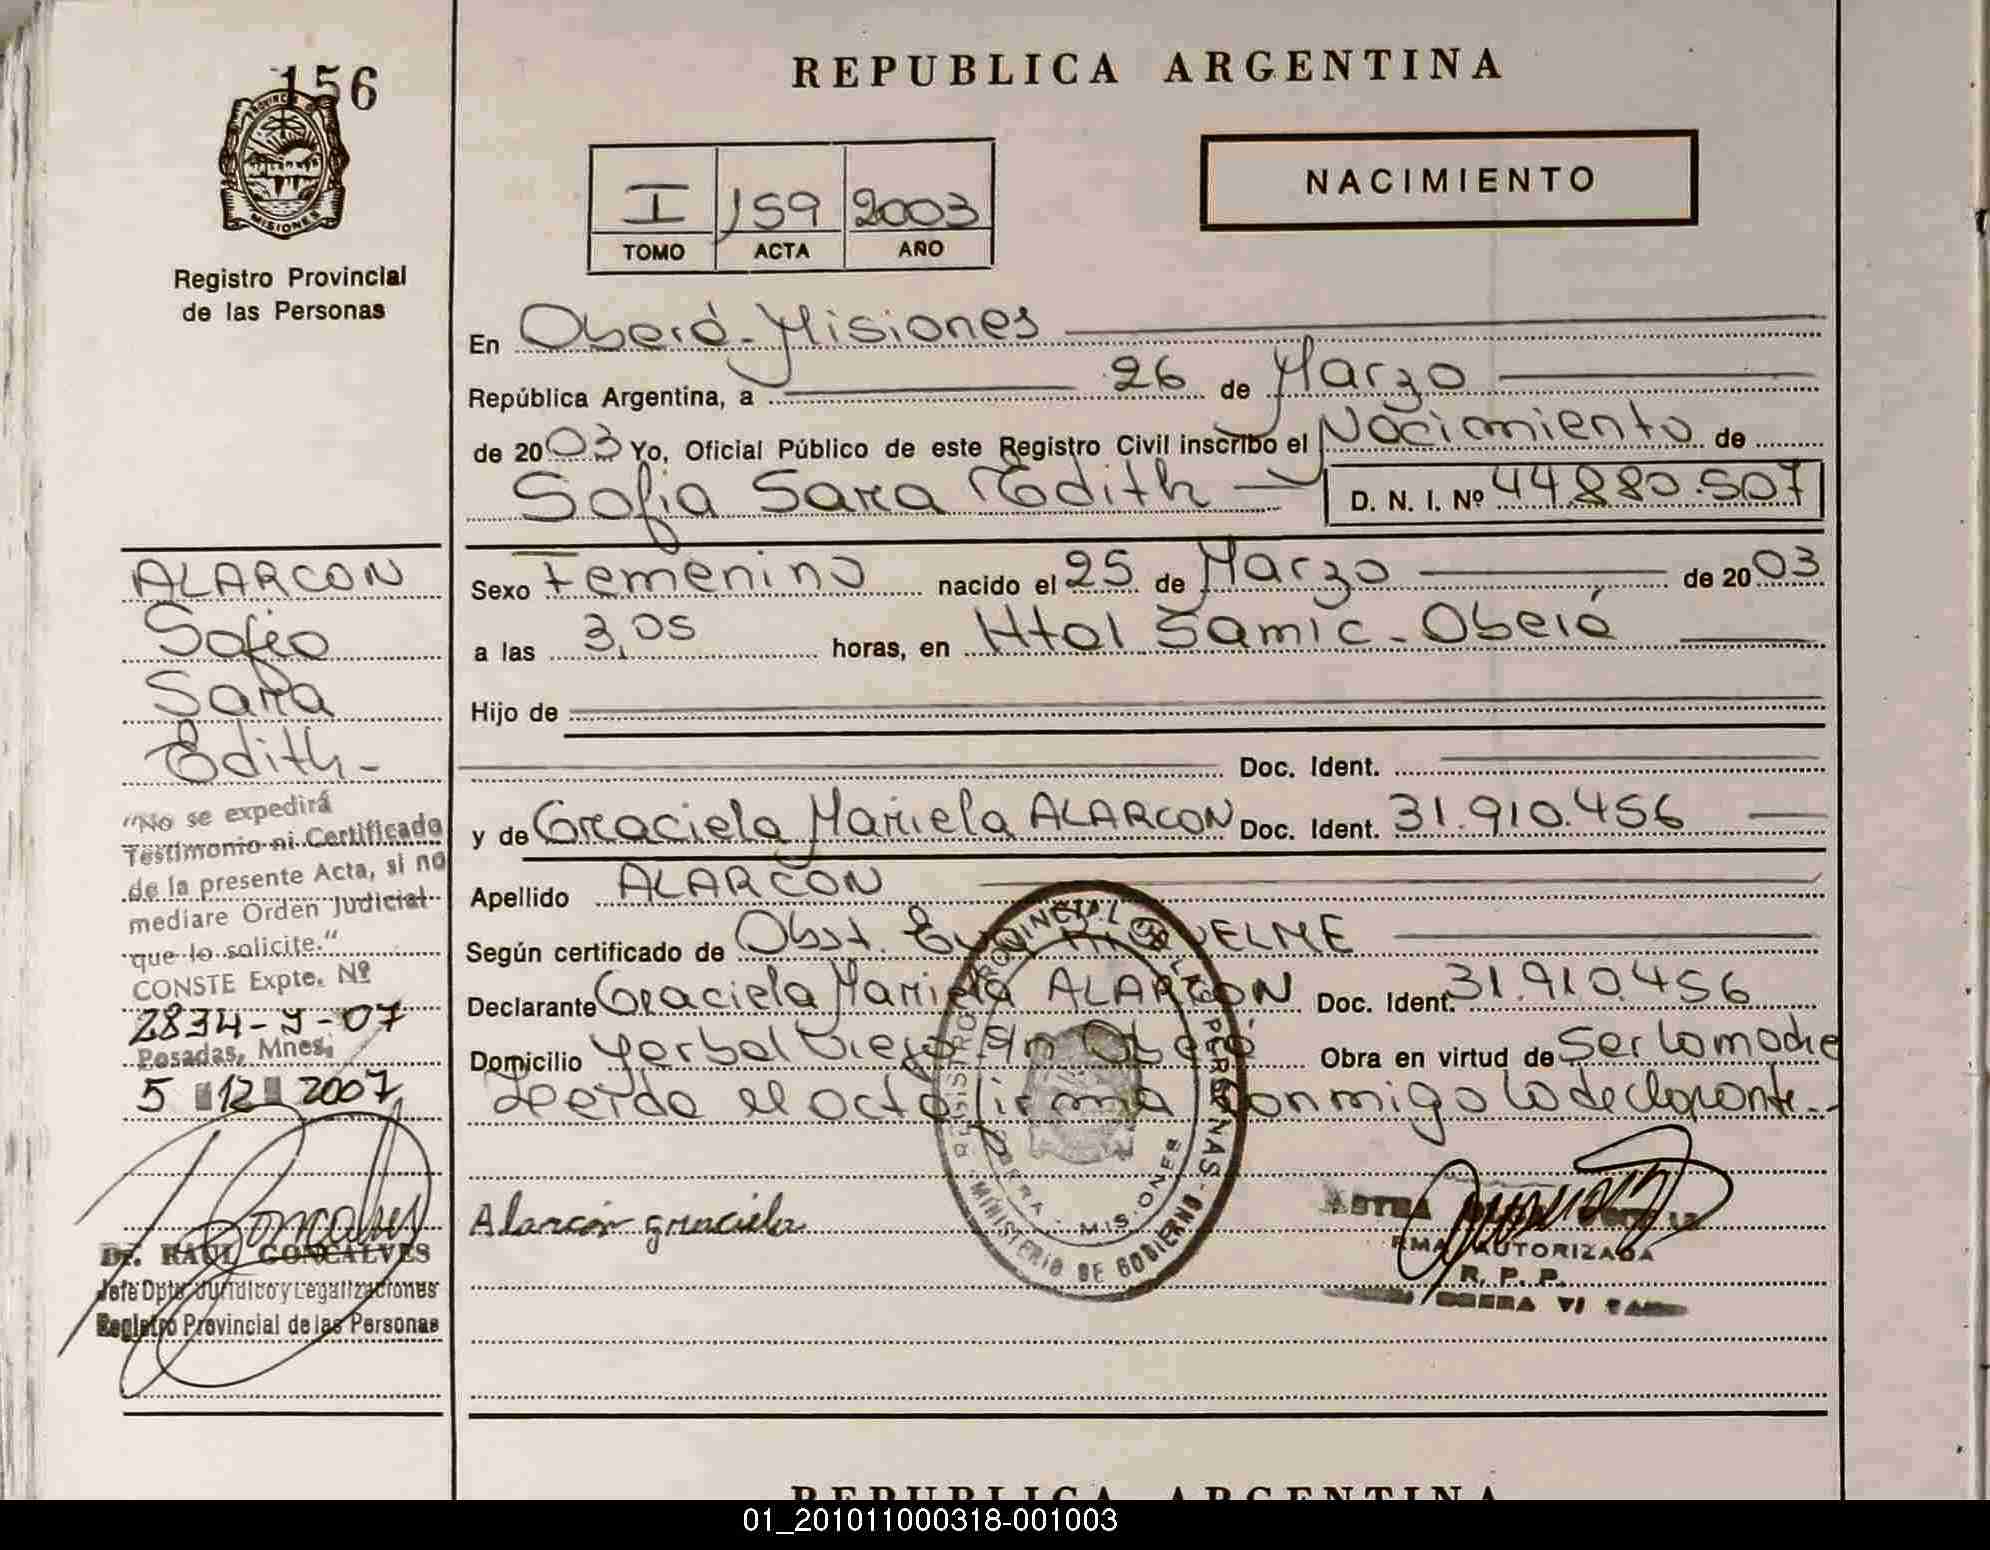 156
PROVINCIA DE
MISIONES
Registro Provincial
de las Personas
REPUBLICA ARGENTINA
I 159 2003
TOMO ACTA AÑO
NACIMIENTO
En Oberá-Misiones
República Argentina, a 26 de Marzo
de 2003 Yo, Oficial Público de este Registro Civil inscribo el Nacimiento de
Sofia Sara Edith D. N. I. Nº 44.880.507
Sexo Femenino nacido el 25 de Marzo de 2003
a las 3,05 horas, en Htal Samic-Oberá
Hijo de
Doc. Ident.
y de Graciela Mariela ALARCON Doc. Ident. 31.910.456
Apellido ALARCON
Según certificado de Obst. ELME
Declarante Graciela Mariela ALARCON Doc. Ident. 31.910.456
Domicilio Yerbal Viejo s/n Oberá Obra en virtud de Ser la madre
Leída el acta firma conmigo la declarante.-
Alarcón graciela
REGISTRO PROVINCIAL DE LAS PERSONAS
MINISTERIO DE GOBIERNO
MISIONES
AUTORIZADA
R. P. P.
ALARCON
Sofia
Sara
Edith-
"No se expedirá
Testimonio ni Certificado
de la presente Acta, si no
mediare Orden Judicial
que lo solicite."
CONSTE Expte. Nº
2834-J-07
Posadas, Mnes,
5 12 2007
Dr. RAUL GONCALVES
Jefe Dpto Jurídico y Legalizaciones
Registro Provincial de las Personas
REPUBLICA ARGENTINA
01_201011000318-001003